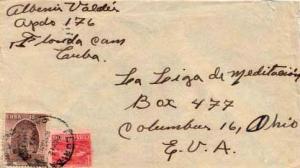 Albenis Valdés
Apdo 176
Florida Cam
Cuba.
La Liga de Meditación
Box 477
Columbus 16, Ohio
E.U.A.